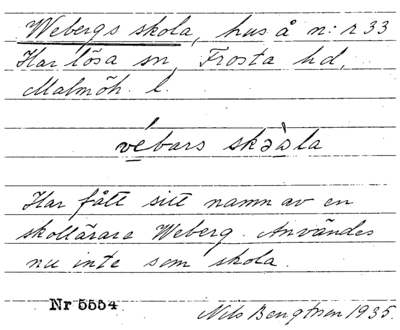 Webergs skola, hus å n:r 33
Harlösa sn, Frosta hd,
Malmöh. l.
vébars skəàla
Har fått sitt namn av en
skollärare Weberg. Användes
nu inte som skola.
Nr 5554 Nils Bengtsson 1935.